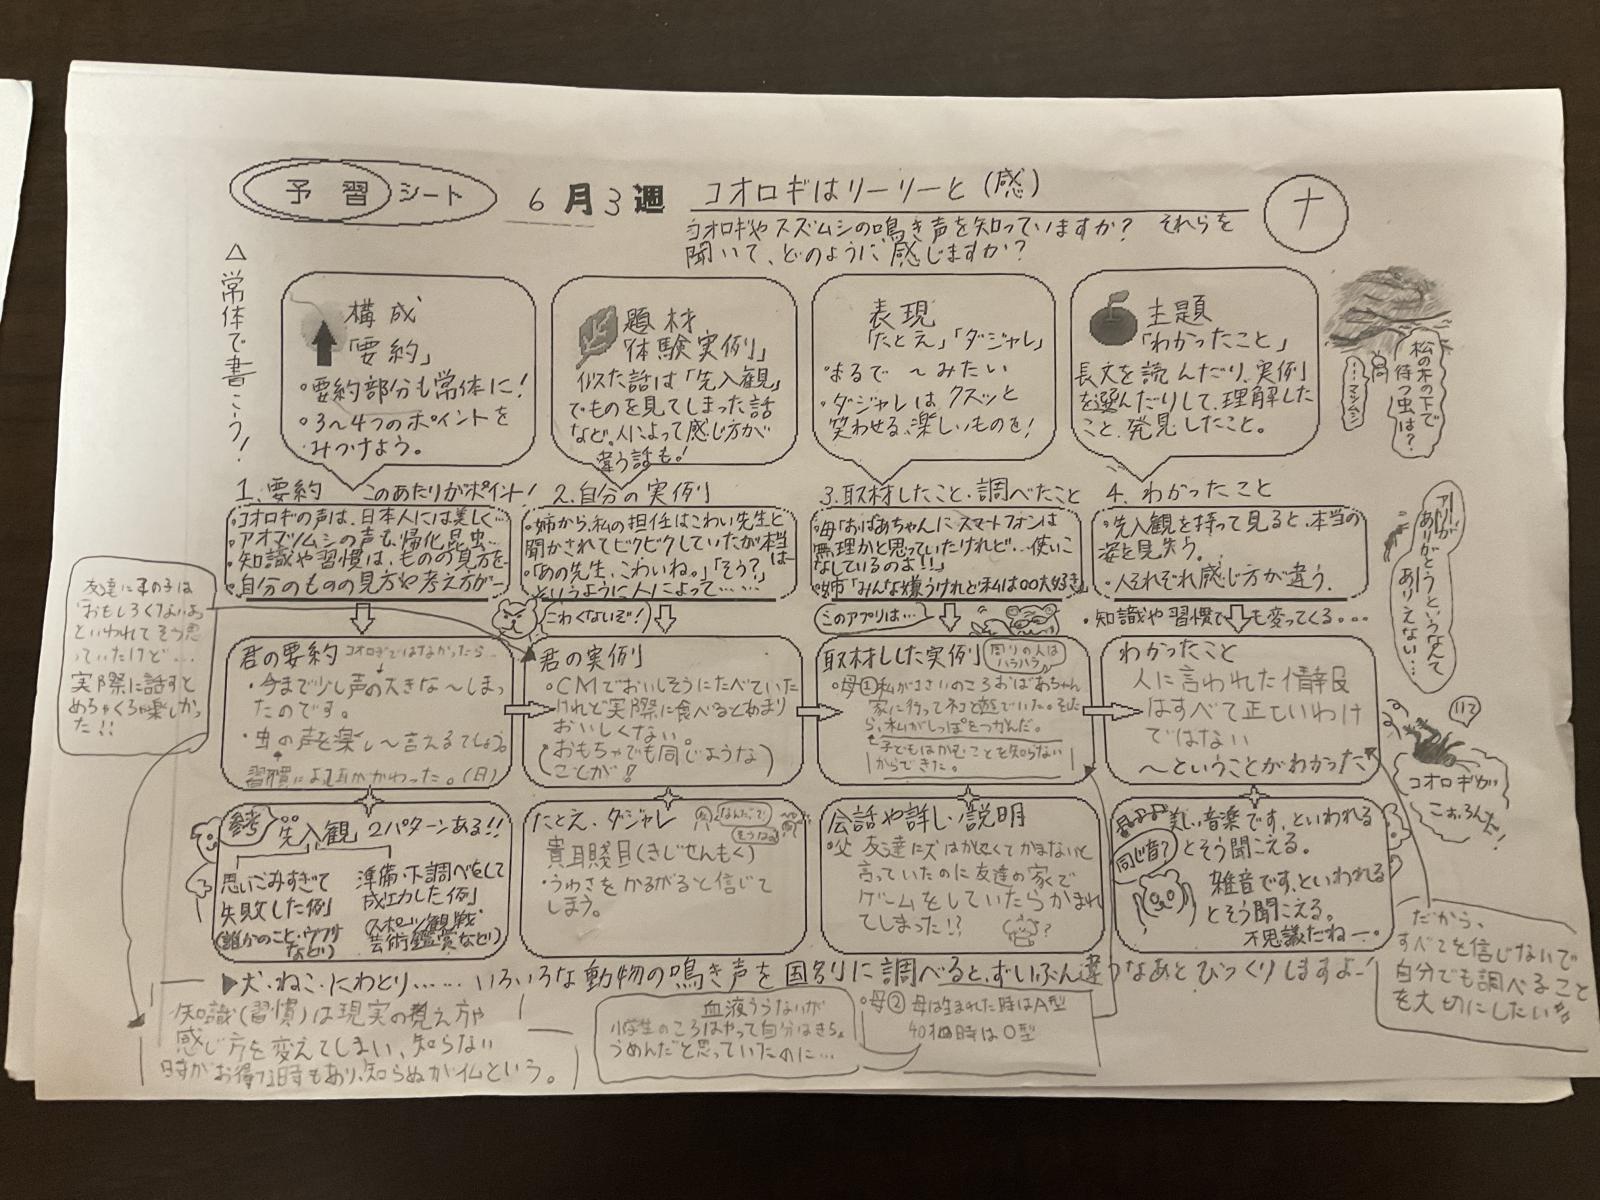 予習シート 6月3週 コオロギはリーリーと(感) ナ
コオロギやスズムシの鳴き声を知っていますか? それらを
聞いて、どのように感じますか?
△常体で書こう!
構成
「要約」
・要約部分も常体に!
・3~4つのポイントを
みつけよう。
題材
「体験実例」
似た話は「先入観」
でものを見てしまった話
など。人によって感じ方が
違う話も!
表現
「たとえ」「ダジャレ」
・まるで~みたい
・ダジャレはクスッと
笑わせる、楽しいものを!
主題
「わかったこと」
長文を読んだり、実例
を選んだりして、理解した
こと、発見したこと。
松の木の下で
待つ虫は?
…マツムシ
1.要約 このあたりがポイント!
・コオロギの声は、日本人には美しく…
・アオマツムシの声も、帰化昆虫…
・知識や習慣は、ものの見方を…
・自分のものの見方や考え方が…
2.自分の実例
・姉から、私の担任はこわい先生と
聞かされてビクビクしていたが本当は…
・「あの先生、こわいね。」「そう?」
というように人によって……
こわくないぞ!
3.取材したこと・調べたこと
・母「おばあちゃんにスマートフォンは
無理かと思っていたけれど…使いこ
なしているのよ!!」
・姉「みんな嫌うけれど私は○○大好き」
このアプリは…
4.わかったこと
・先入観を持って見ると、本当の
姿を見失う。
・人それぞれ感じ方が違う。
・知識や習慣でも変ってくる。。。
アリが
ありがとうというなんて
ありえない…
友達に耳の子は
「おもしろくないよ」
といわれてそう思
っていたけど…
実際に話すと
めちゃくちゃ楽しかっ
た!!
君の要約 コオロギではなかったら…
・今まで少し声の大きな~しまっ
たのです。
・虫の声を楽し~言えるでしょう。
習慣によ耳がかわった。(日)
君の実例
・CMでおいしそうにたべていた
けれど実際に食べるとあまり
おいしくない。
(おもちゃでも同じような
ことが!)
取材しした実例 周りの人は
ハラハラ
・母① 私が3さいのころおばあちゃん
家に行ってネコと遊でいた。そした
ら、私がしっぽをつかんだ。
子どもはかむことを知らない
からできた。
わかったこと
人に言われた情報
はすべて正しいわけ
ではない
~ということがわかった
コオロギが
こおろんだ!
参考 "先入観" 2パターンある!!
思いこみすぎて
失敗した例」
(誰かのこと・ウワサ
など)
準備・下調べをして
成功した例」
(スポーツ観戦・
芸術鑑賞など)
たとえ・ダジャレ なんだって!
そうなの
貴耳賤目(きじせんもく)
・うわさをかるがると信じて
しまう。
会話や詳しい説明
・父 友達に犬はかしこくてかまないと
言っていたのに友達の家で
ゲームをしていたらかまれ
てしまった!?
?
美しい音楽です、といわれる
とそう聞こえる。
同じ音?
雑音です、といわれる
とそう聞こえる。
不思議だねー。
▶犬・ねこ・にわとり……いろいろな動物の鳴き声を国別に調べると、ずいぶん違うなあとびっくりしますよー!
だから、
すべてを信じないで
自分でも調べること
を大切にしたい
知識(習慣)は現実の覚え方や
感じ方を変えてしまい、知らない
時がお得な時もあり、知らぬが仏という。
血液うらないが
小学生のころはやって自分はきちょ
うめんだと思っていたのに…
・母② 母は生まれた時はA型
40才時はO型